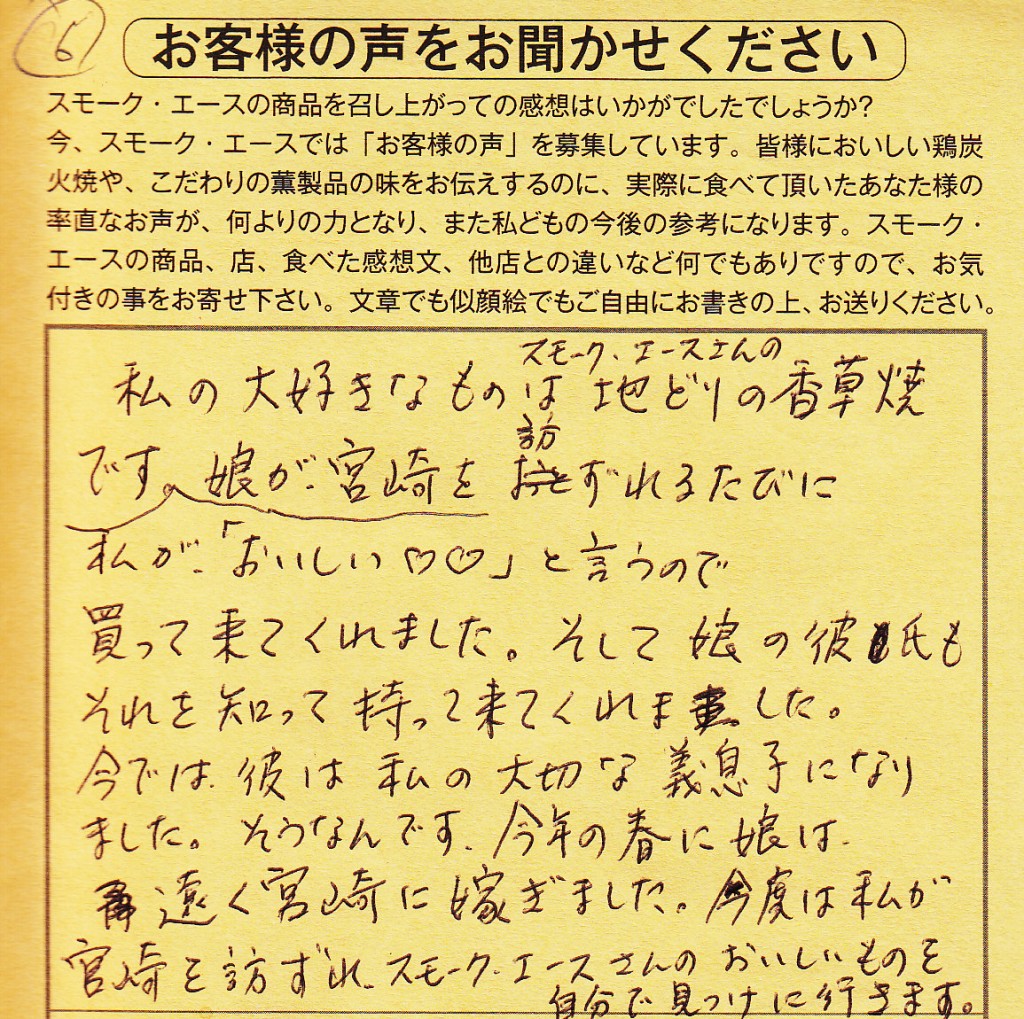 6
お客様の声をお聞かせください
スモーク・エースの商品を召し上がっての感想はいかがでしたでしょうか?
今、スモーク・エースでは「お客様の声」を募集しています。皆様においしい鶏炭
火焼や、こだわりの薫製品の味をお伝えするのに、実際に食べて頂いたあなた様の
率直なお声が、何よりの力となり、また私どもの今後の参考になります。スモーク・
エースの商品、店、食べた感想文、他店との違いなど何でもありですので、お気
付きの事をお寄せ下さい。文章でも似顔絵でもご自由にお書きの上、お送りください。
スモーク・エースさんの
私の大好きなものは地どりの香草焼
訪
です。娘が、宮崎をおとずれるたびに
私が、「おいしい♡♡」と言うので
買って来てくれました。そして娘の彼氏も
それを知って持って来てくれました。
今では、彼は私の大切な義息子になり
ました。そうなんです、今年の春に娘は、
遠く宮崎に嫁ぎました。今度は私が
宮崎を訪ずれ、スモーク・エースさんのおいしいものを
自分で見つけに行きます。